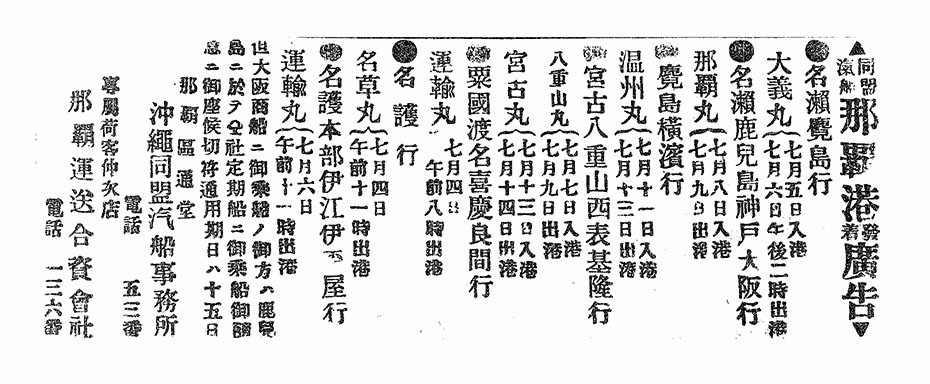 ▲同盟汽船那覇港發着廣告▼
●名瀬麑島行
大義丸{七月五日入港
七月六日午後二時出港
●名瀬鹿兒島神戸大阪行
那覇丸{七月八日入港
七月九日出港
●麑島横濱行
温州丸{七月十一日入港
七月十三日出港
●宮古八重山西表基隆行
八重山丸{七月七日入港
七月九日出港
宮古丸{七月十三日入港
七月十四日出港
●粟國渡名喜慶良間行
運輸丸 七月四日
午前八時出港
●名護行
名草丸{七月四日
午前十一時出港
●名護本部伊江伊平屋行
運輸丸{七月六日
午前十一時出港
但大阪商船ニ御乗船ノ御方ハ鹿兒
島ニ於テ仝社定期船ニ御乗船御隨
意ニ御座候切符通用期日ハ十五日
那覇區通堂
沖繩同盟汽船事務所
電話 五三番
專屬荷客仲次店
那覇運送合資會社
電話 一三六番